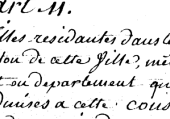 art M.
lles residantes dans le
don de cette Ville, mê
t ou departement qu
dunises a cette cons